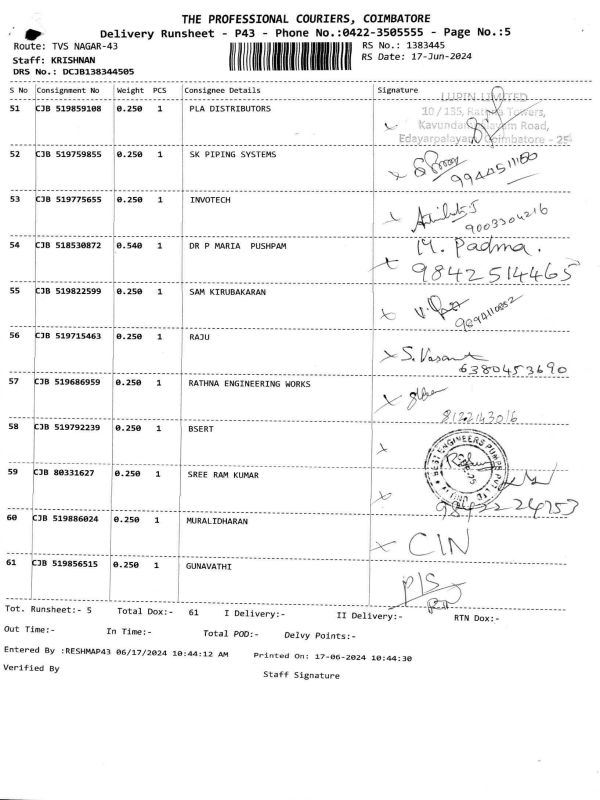 THE PROFESSIONAL COURIERS, COIMBATORE
Delivery Runsheet - P43 - Phone No.:0422-3505555 - Page No.:5
Route: TVS NAGAR-43 RS No.: 1383445
Staff: KRISHNAN RS Date: 17-Jun-2024
DRS No.: DCJB138344505
S No Consignment No Weight PCS Consignee Details Signature
LUPIN LIMITED
51 CJB 519859108 0.250 1 PLA DISTRIBUTORS 10 / 135, Towers,
Road,
Edayarpalayam, Coimbatore - 25
52 CJB 519759855 0.250 1 SK PIPING SYSTEMS
9944511150
53 CJB 519775655 0.250 1 INVOTECH
9003304216
54 CJB 518530872 0.540 1 DR P MARIA PUSHPAM M. Padma.
9842514465
55 CJB 519822599 0.250 1 SAM KIRUBAKARAN
56 CJB 519715463 0.250 1 RAJU S. Vasant
6380453690
57 CJB 519686959 0.250 1 RATHNA ENGINEERING WORKS
8122143016
58 CJB 519792239 0.250 1 BSERT BEST ENGINEERS PUMPS PVT LTD
59 CJB 80331627 0.250 1 SREE RAM KUMAR
60 CJB 519886024 0.250 1 MURALIDHARAN CIN
61 CJB 519856515 0.250 1 GUNAVATHI P/S
Tot. Runsheet:- 5 Total Dox:- 61 I Delivery:- II Delivery:- RTN Dox:-
Out Time:- In Time:- Total POD:- Delvy Points:-
Entered By :RESHMAP43 06/17/2024 10:44:12 AM Printed On: 17-06-2024 10:44:30
Verified By Staff Signature